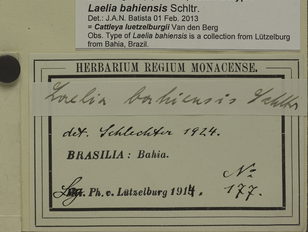 Laelia bahiensis Schltr.
Det.: J.A.N. Batista 01 Feb. 2013
= Cattleya luetzelburgii Van den Berg
Obs. Type of Laelia bahiensis is a collection from Lützelburg
from Bahia, Brazil.
HERBARIUM REGIUM MONACENSE.
Laelia bahiensis Schltr
det. Schlechter 1924.
BRASILIA: Bahia.
Leg. Ph. v. Lützelburg 1914. No 177.